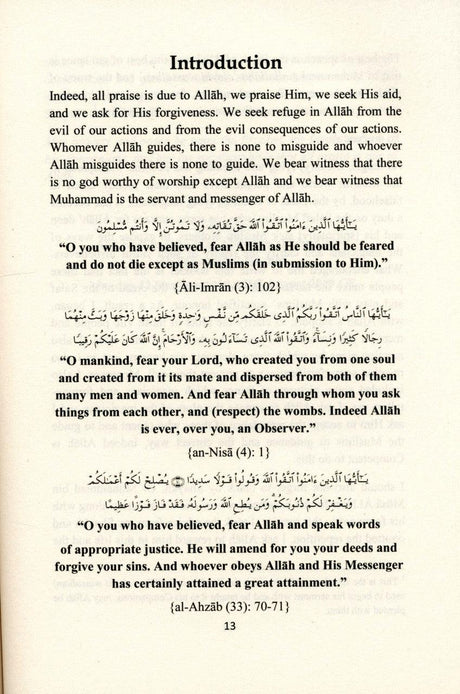 Introduction
Indeed, all praise is due to Allāh, we praise Him, we seek His aid,
and we ask for His forgiveness. We seek refuge in Allāh from the
evil of our actions and from the evil consequences of our actions.
Whomever Allāh guides, there is none to misguide and whoever
Allāh misguides there is none to guide. We bear witness that there
is no god worthy of worship except Allāh and we bear witness that
Muhammad is the servant and messenger of Allāh.
يَـٰٓأَيُّهَا ٱلَّذِينَ ءَامَنُوا۟ ٱتَّقُوا۟ ٱللَّهَ حَقَّ تُقَاتِهِۦ وَلَا تَمُوتُنَّ إِلَّا وَأَنتُم مُّسْلِمُونَ
“O you who have believed, fear Allāh as He should be feared
and do not die except as Muslims (in submission to Him).”
{Āli-Imrān (3): 102}
يَـٰٓأَيُّهَا ٱلنَّاسُ ٱتَّقُوا۟ رَبَّكُمُ ٱلَّذِى خَلَقَكُم مِّن نَّفْسٍ وَٰحِدَةٍ وَخَلَقَ مِنْهَا زَوْجَهَا وَبَثَّ مِنْهُمَا
رِجَالًا كَثِيرًا وَنِسَآءً ۚ وَٱتَّقُوا۟ ٱللَّهَ ٱلَّذِى تَسَآءَلُونَ بِهِۦ وَٱلْأَرْحَامَ ۚ إِنَّ ٱللَّهَ كَانَ عَلَيْكُمْ رَقِيبًا
“O mankind, fear your Lord, who created you from one soul
and created from it its mate and dispersed from both of them
many men and women. And fear Allāh through whom you ask
things from each other, and (respect) the wombs. Indeed Allāh
is ever, over you, an Observer.”
{an-Nisā (4): 1}
يَـٰٓأَيُّهَا ٱلَّذِينَ ءَامَنُوا۟ ٱتَّقُوا۟ ٱللَّهَ وَقُولُوا۟ قَوْلًا سَدِيدًا ۝ يُصْلِحْ لَكُمْ أَعْمَـٰلَكُمْ
وَيَغْفِرْ لَكُمْ ذُنُوبَكُمْ ۗ وَمَن يُطِعِ ٱللَّهَ وَرَسُولَهُۥ فَقَدْ فَازَ فَوْزًا عَظِيمًا
“O you who have believed, fear Allāh and speak words
of appropriate justice. He will amend for you your deeds and
forgive your sins. And whoever obeys Allāh and His Messenger
has certainly attained a great attainment.”
{al-Ahzāb (33): 70-71}
13